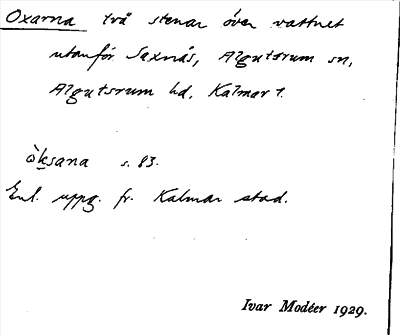 Oxarna två stenar över vattnet
utanför Saxnäs, Algutsrum sn,
Algutsrum hd, Kalmar l.
òksana s. 83.
Enl. uppg. fr. Kalmar stad.
Ivar Modéer 1929.